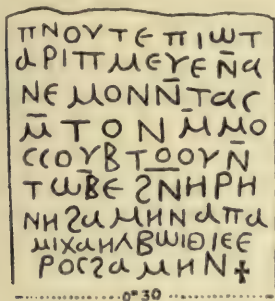 ⲡⲛⲟⲩⲧⲉⲡⲓⲱⲧ
ⲁⲣⲓⲡⲙⲉⲩⲉⲛ̄ⲁ
ⲛⲉⲙⲟⲛⲛ̄ⲧⲁⲥ
ⲙ̄ⲧⲟⲛⲙ̄ⲙⲟ
ⲥⲥⲟⲩⲃⲧⲟⲟⲩⲛ̄
ⲧⲱⲃ̄ⲉϩⲛ̄ⲏⲣⲏ
ⲛⲏϩⲁⲙⲏⲛⲁⲡⲁ
ⲙⲓⲭⲁⲏⲗⲃⲱⲓⲑⲓⲉⲉ
ⲣⲟⲥϩⲁⲙⲏⲛ✝
0ᵐ30